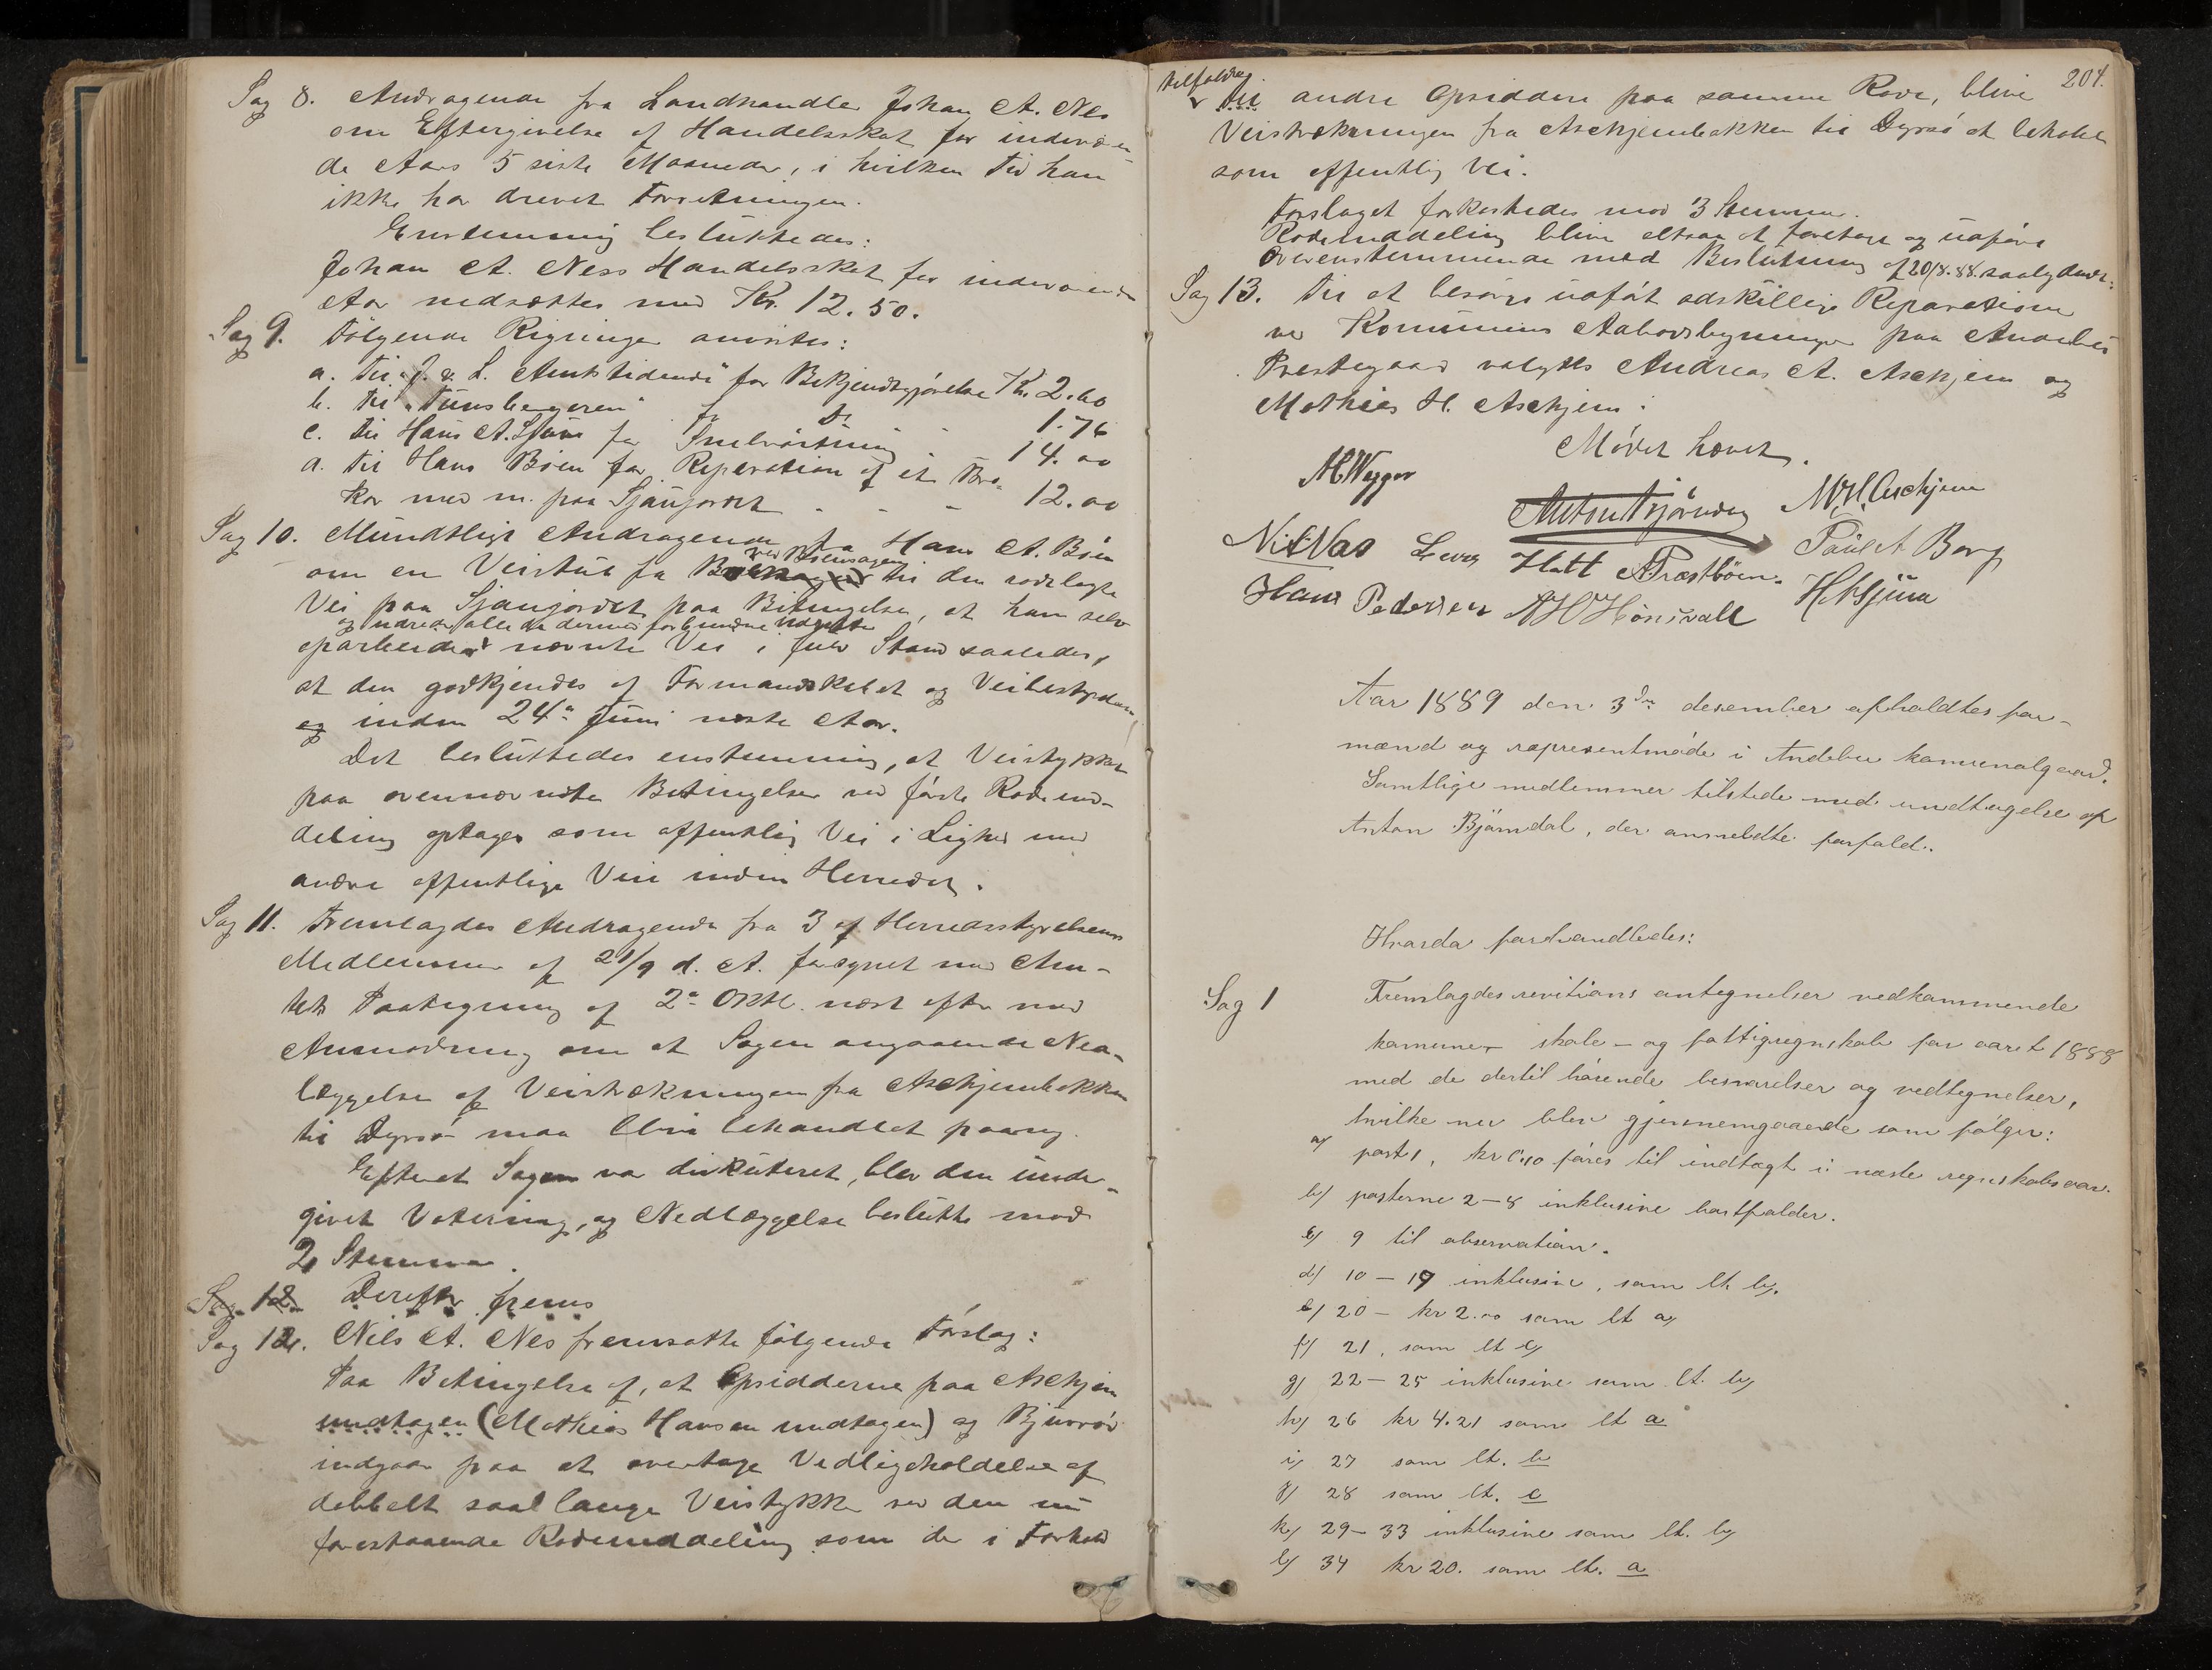 Sag 8. Andragende fra Landhandler Johan A. Nes
om Eftergivelse af Handelsskat for indeværen-
de Aars 5 siste Maaneder, i hvilken Tid han
ikke har drevet Forretningen.
Enstemmig besluttedes:
Johan A. Ness Handelsskat for indeværende
Aar nedsættes med Kr. 12.50.
Sag 9. Følgende Regninger anvistes:
a. Til "J. & L. Amtstidende" for Bekjendtgjørelse Kr. 2.60
b. Til "Tunsbergeren" for Do 1.76
c. Til Hans A. Sjue for 14.00
d. Til Hans Bøen for Reperation af et Bro-
kar med m. paa Sjuejordet - - - 12.00
Sag 10. Mundtligt Andragende fra Hans A. Bøen
om en Veistub fra ved Bøensagen til den rodelagte
Vei paa Sjuejordet paa Betingelse, at han selv
og udreder alle de dermed forbundne Udgifter
oparbeider nævnte Vei i fuld Stand saaledes,
at den godkjendes af Formandskabet og Veibestyrelsen
og inden 24de Juni næste Aar.
Det besluttedes enstemmig, at Veistykket
paa ovennævnte Betingelser ved første Rodeind-
deling optages som offentlig Vei i Lighed med
andre offentlige Veie inden Herredet.
Sag 11. Fremlagdes Andragende fra 3 af Herredsstyrelsens
Medlemmer af 21/9 d. A. forsynet med Am-
tets Paategning af 2de Oktb. næst efter med
Anmodning om at Sagen angaaende Ned-
læggelse af Veistrækningen fra Askjembækken
til Dyrsø maa blive behandlet paany.
Efterat Sagen var diskuteret, blev den under-
givet Votering, og Nedlæggelse besluttet mod
2 Stemmer.
Sag 12. Derefter frems
Sag 12. Nils A. Nes fremsatte følgende Forslag:
Paa Betingelse af, at Opsidderne paa Askjem
undtagen (Mathias Hansen undtagen) og Bjuerød
indgaar paa at overtage Vedligeholdelse af
dobbelt saa lange Veistykke ved den nu
forestaaende Rodeinddeling som de i Forhold
204.
tilfalder
til andre Opsiddere paa samme Rode, blive
Veistrækningen fra Askjembækken til Dyrsø at beholde
som offentlig Vei.
Forslaget forkastedes mod 3 Stemmer.
Rodeinddeling bliver altsaa at foretage og udføre
overensstemmende med Beslutning af 20/8.88. saalydende:
Sag 13. Til at besørge udført adskillige Reparationer
ved Kommunens Aabodsbygninger paa Andebu
Prestegaard valgtes Andreas A. Askjem og
Mathias H. Askjem.
Mødet hævet.
Anton Bjørndal M. H. Aschjem
N. A. Nas Lars Hatt A. Præstbøen. Paul A Berg
Hans Pedersen A H Hønsvall H A Sjue
Aar 1889 den 3die desember afholdtes for-
mænd og representmøde i Andebu komunalgaard.
Samtlige medlemmer tilstede med undtagelse af
Anton Bjørndal, der anmeldte forfald.
Hvorda forhandledes:
Sag 1 Fremlagdes revitions antegnelser vedkommende
komune- skole- og fattigregnskab for aaret 1888
med de dertil hørende besvarelser og vedtegnelser,
hvilke nu blev gjennemgaaede som følger:
a) post 1, kr 0.10 føres til indtægt i næste regnskabsaar.
b) posterne 2-8 inklusive bortfalder.
c) 9 til observation.
d) 10-19 inklusive, som lt. b).
e) 20 - kr 2.00 som lt a)
f) 21, som lt c)
g) 22-25 inklusive som lt. b)
h) 26 kr 4.21 som lt a
i) 27 som lt. b
j) 28 som lt. c
k) 29-33 inklusive som lt. b)
l) 34 kr 20. som lt. a